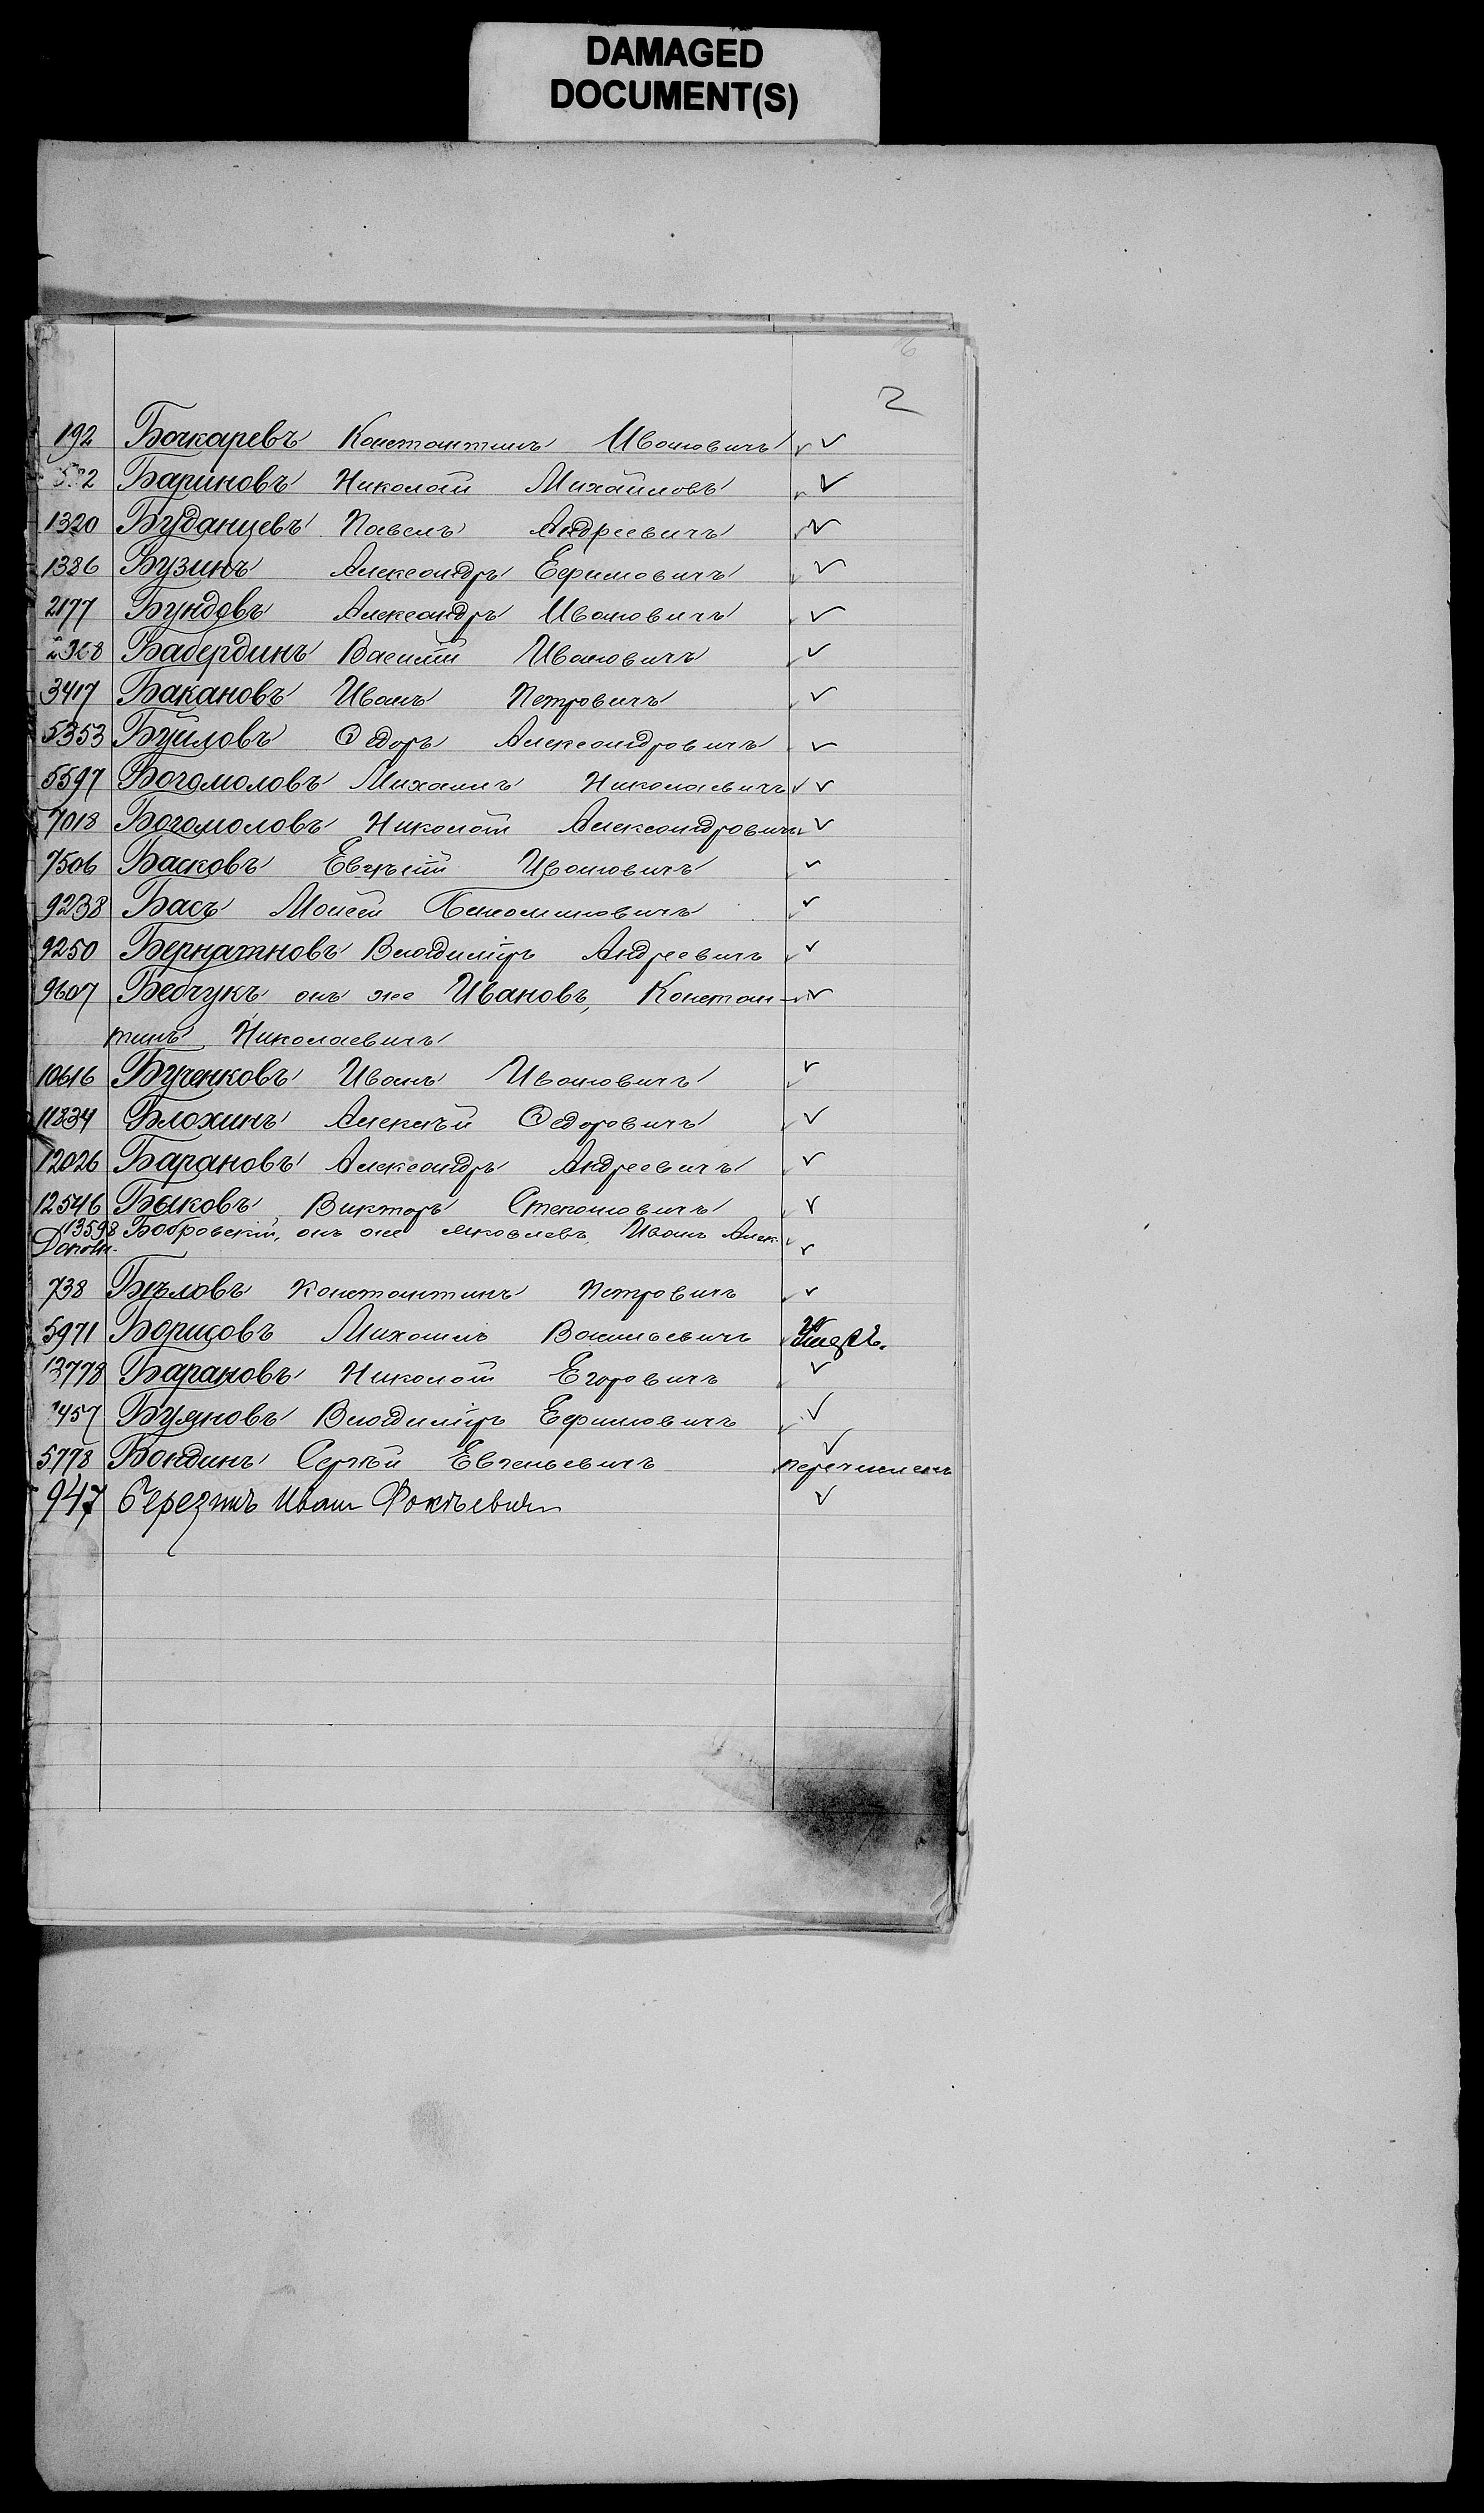 DAMAGED
DOCUMENT(S)
2
192 Бочкаревъ Константинъ Ивановичъ
Бариновъ Николай Михайловъ
1320 Буданцевъ Павелъ Андреевичъ
1386 Бузинъ Александръ Ефимовичъ
2177 Бундовъ Александръ Ивановичъ
Бабердинъ Василій Ивановичъ
3417 Бакановъ Иванъ Петровичъ
5353 Буйловъ Ѳедоръ Александровичъ
5597 Богомоловъ Михаилъ Николаевичъ
7018 Богомоловъ Николай Александровичъ
7506 Басковъ Евгеній Ивановичъ
9238 Басъ Моисей Бенеоминовичъ
9250 Бернатновъ Владиміръ Андреевичъ
9607 Бебчукъ онъ же Ивановъ, Констан-
тинъ Николаевичъ
10616 Бученковъ Иванъ Ивановичъ
11834 Блохинъ Алексѣй Ѳедоровичъ
12026 Барановъ Александръ Андреевичъ
12546 Быковъ Викторъ Степановичъ
13598 Бобровскій, онъ же Яковлевъ, Иванъ Алек.
Дополн.
738 Бѣловъ Константинъ Петровичъ
5971 Борисовъ Михаилъ Васильевичъ
13778 Барановъ Николай Егоровичъ
Буяновъ Владиміръ Ефимовичъ
5778 Бондинъ Сергѣй Евгеньевичъ перечисленъ
947 Березинъ Иванъ Фокіевичъ